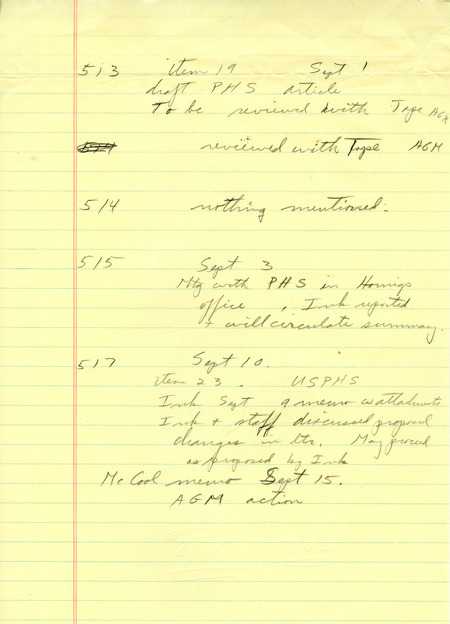 513 item 19 Sept 1
draft PHS article
To be reviewed with Tape AGM
514 reviewed with Tape AGM
514 nothing mentioned.
515 Sept 3
Mtg with PHS in Hornigs
office, Ink reported
+ will circulate summary.
517 Sept 10.
item 23. USPHS
Ink Sept 9 memo w attachments
Ink + staff discussed proposed
changes in ltr. May proceed
as proposed by Ink
McCool memo Sept 15.
AGM action